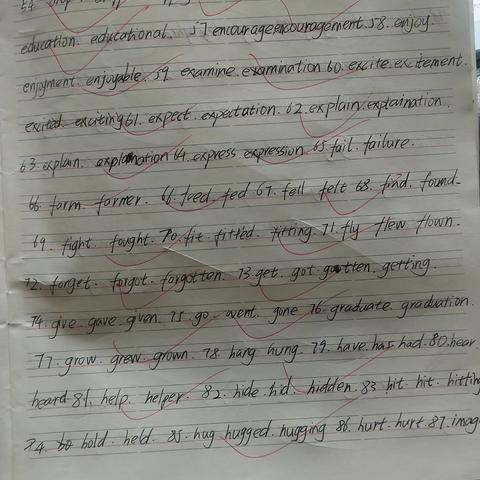 education. educational. 57 encourage encouragement 58. enjoy.
enjoyment. enjoyable. 59. examine. examination 60. excite. excitement.
excited. exciting 61. expect. expectation. 62. explain. explaination.
63. explain. explanation 64. express expression. 65. fail. failure.
66. farm farmer. 66. feed. fed 67. fell felt 68. find. found.
69. fight. fought. 70. fit. fitted. fitting. 71. fly flew flown.
72. forget. forgot. forgotten. 73. get. got gotten. getting.
74. give. gave. given. 75. go. went. gone 76. graduate. graduation.
77. grow. grew. grown. 78. hang hung. 79. have. has. had. 80. hear.
heard 81. help. helper. 82. hide hid. hidden. 83 hit. hit. hitting
84. hold. held. 85. hug hugged. hugging 86. hurt. hurt. 87. imag